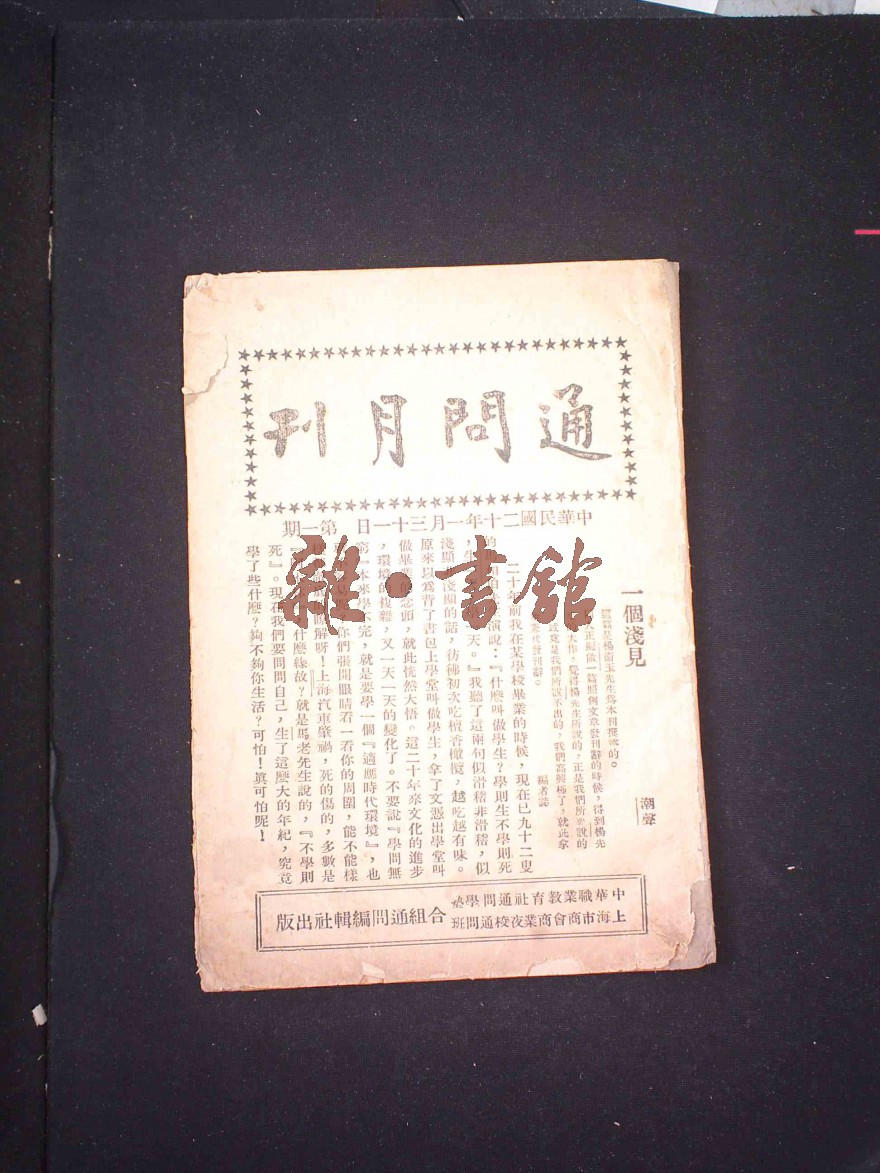 通問月刊
中華民國二十年一月三十一日 第一期
雜·書館
一個淺見
潮聲
楊衛玉先生爲本刊撰
正擬做一篇照例文章發刊辭的時候，得到楊先
大作，覺得楊先生所說的，正是我們所要說的
是我們所說不出的，我們高興極了，就此拿
代發刊辭。 編者誌
二十年前我在某學校畢業的時候，現在已九十二叟
演說：『什麼叫做學生？學則生不學則死
天。』我聽了這兩句似滑稽非滑稽，似
淺顯 的話，彷彿初次吃檀香橄欖，越吃越有味。
原來以爲背了書包上學堂叫做學生，拿了文憑出學堂叫
做畢業 念頭，就此恍然大悟。這二十年來文化的進步
，環境的複雜，又一天一天的變化了。不要說『學問無
窮』本來學不完，就是要學一個『適應時代環境』，也
你們張開眼睛看一看你的周圍，能不能樣
解呀！上海汽車肇禍，死的傷的，多數是
什麼緣故？就是馬老先生說的，『不學則
死』。現在我們要問問自己，生了這麼大的年紀，究竟
學了些什麼？夠不夠你生活？可怕！眞可怕呢！
中華職業教育社通問學塾
上海市商會商業夜校通問班
合組通問編輯社出版